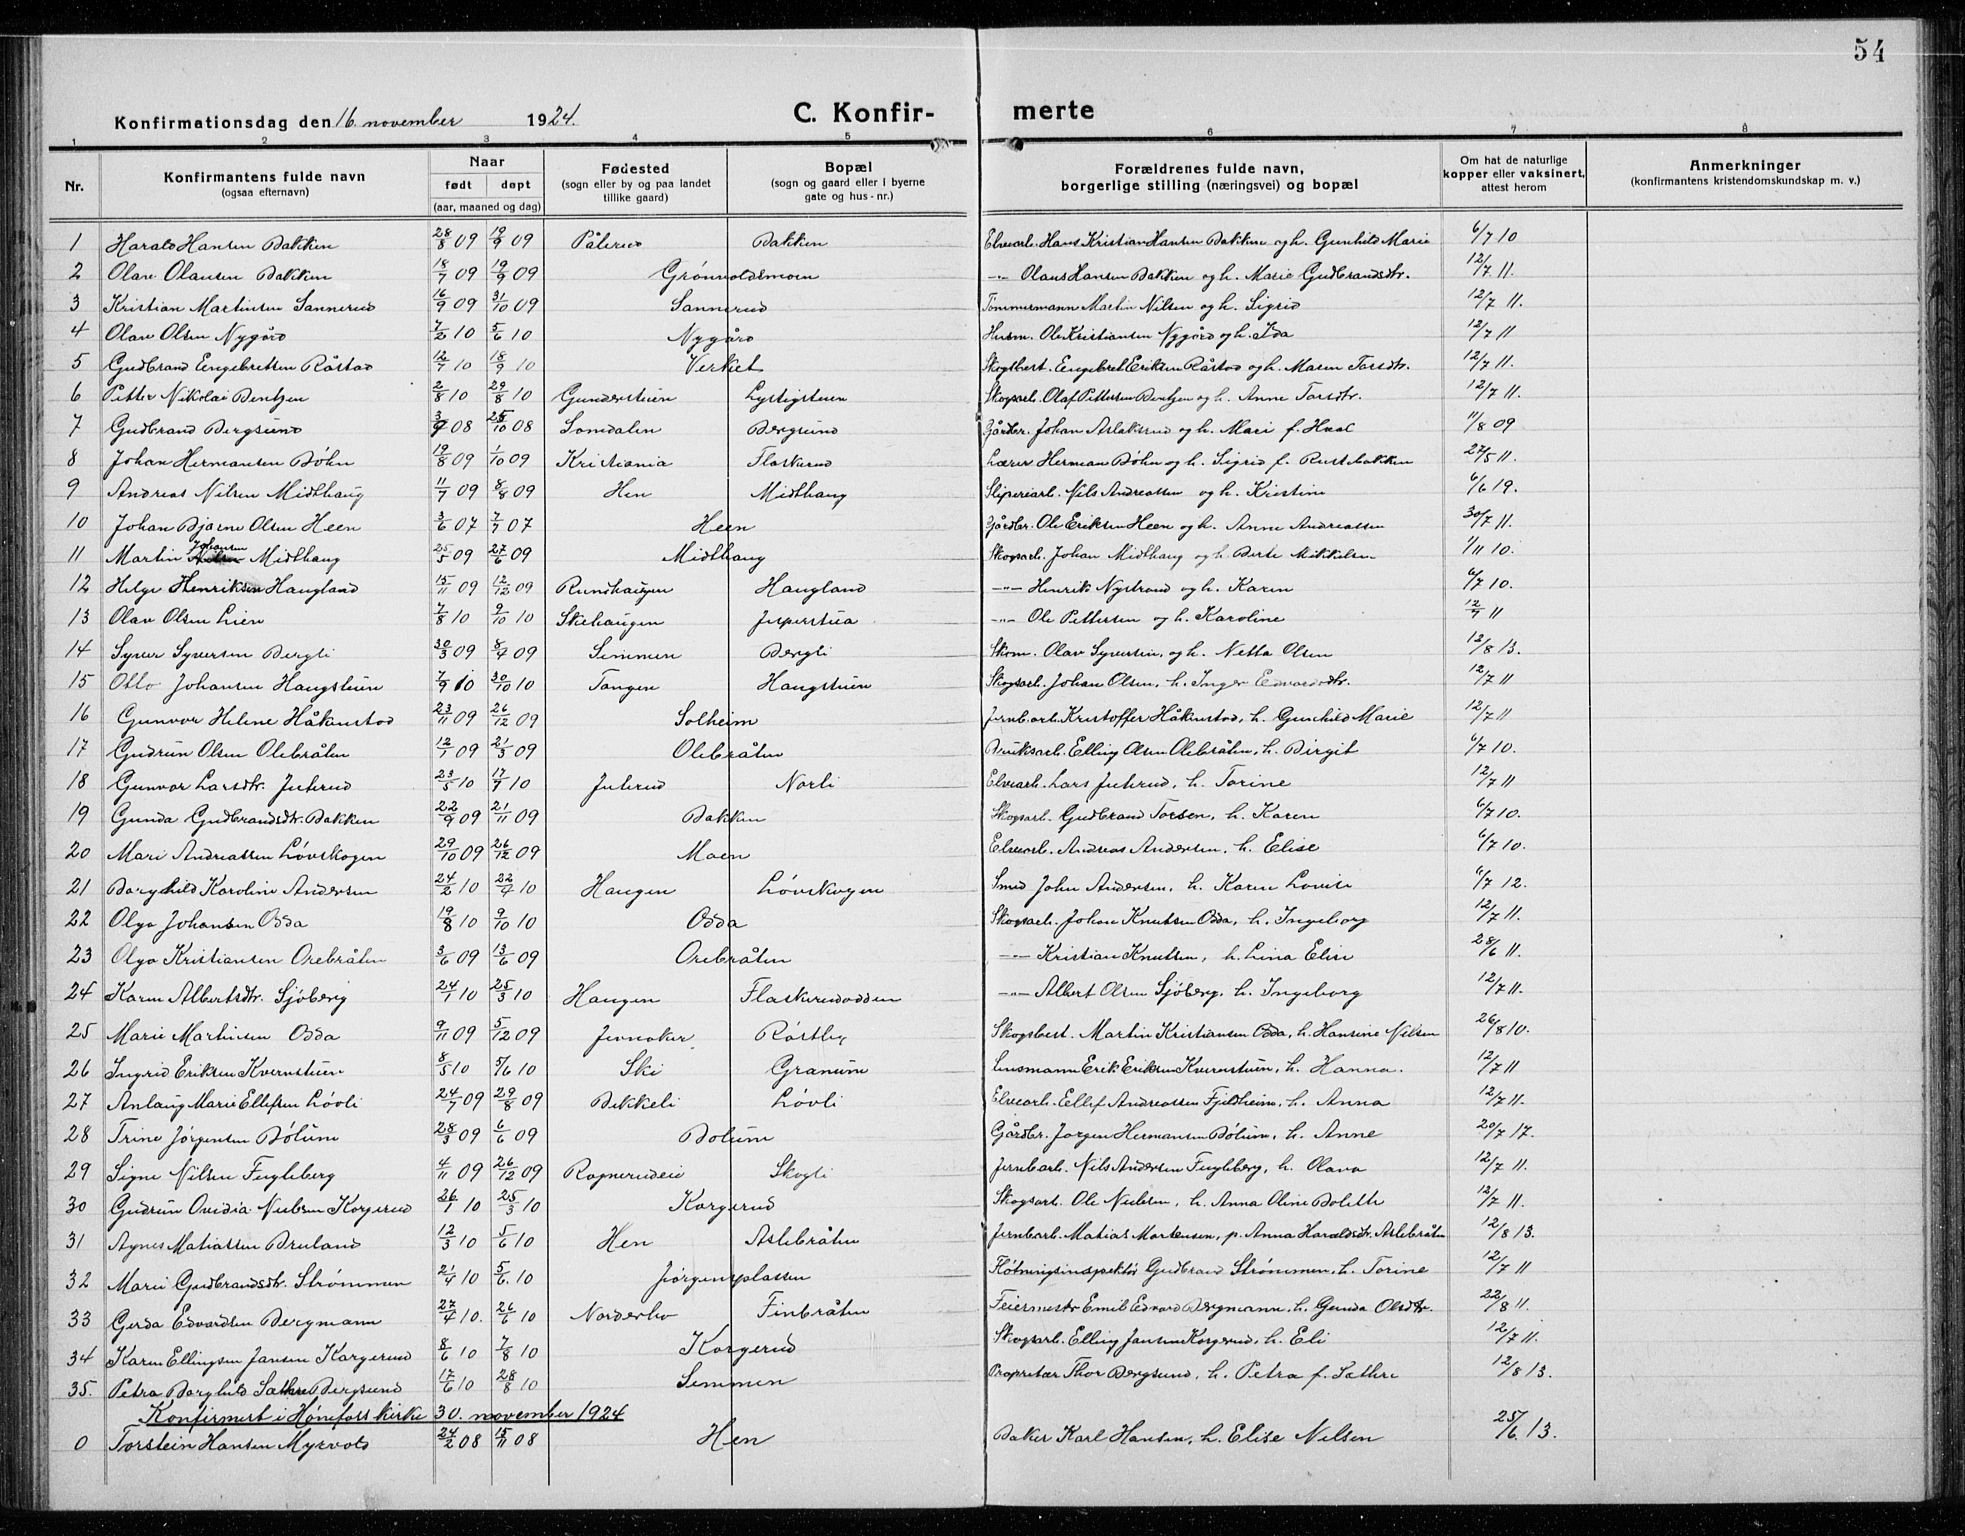 54
Konfirmationsdag den 16. november 1924.
C. Konfir-
merte
1 2 3 4 5 6 7 8
Nr.
Konfirmantens fulde navn
(ogsaa efternavn)
Naar
født døpt
(aar, maaned og dag)
Fødested
(sogn eller by og paa landet
tillike gaard)
Bopæl
(sogn og gaard eller i byerne
gate og hus-nr.)
Forældrenes fulde navn,
borgerlige stilling (næringsvei) og bopæl
Om hat de naturlige
kopper eller vaksinert,
attest herom
Anmerkninger
(konfirmantens kristendomskundskap m. v.)
1 Harald Hansen Bakken 28/8 09 19/9 09 Pålerud Bakken Elvearb. Hans Kristian Hansen Bakken og h. Gunhild Marie 6/7 10
2 Olav Olausen Bakken 18/7 09 19/9 09 Grønvoldsmoen -"- Olaus Hansen Bakken og h. Marie Gudbrandsdtr. 12/7 11.
3 Kristian Martinsen Sannerud 16/9 09 31/10 09 Sannerud Tømmermann Martin Nilsen og h. Sigrid 12/7 11.
4 Olav Olsen Nygård 7/2 10 5/6 10 Nygård Husm. Ole Kristiansen Nygård og h. Ida 12/7 11
5 Gudbrand Engebretsen Råstad 12/7 10 18/9 10 Verket Skogsbest. Engebret Eriksen Råstad og h. Maren Torsdtr. 12/7 11.
6 Petter Nikolai Bentzen 2/8 10 29/8 10 Gunderstuen Lystigstuen Skogsarb. Olaf Pettersen Bentzen og h. Anne Torsdtr. 12/7 11.
7 Gudbrand Bergsund 3/9 08 25/10 08 Somdalen Bergsund Gårdbr. Johan Aslaksrud og h. Mari f. Hval 11/8 09
8 Johan Hermansen Bøhn 19/8 09 1/10 09 Kristiania Flaskerud Lærer Herman Bøhn og h. Sigrid f. Rustebakken 27/5 11.
9 Andreas Nilsen Midthaug 11/7 09 8/8 09 Hen Midthaug Sliperiarb. Nils Andreassen og h. Kristine 6/6 19.
10 Johan Bjarne Olsen Heen 3/6 07 7/7 07 Heen Gårdbr. Ole Eriksen Heen og h. Anne Andreassen 30/7 11.
11 Martin Johansen Midthaug 25/5 09 27/6 09 Midthaug Skogsarb. Johan Midthaug og h. Berte Mikkelsen 1/11 10.
12 Helge Henriksen Haugland 15/11 09 12/12 09 Rundhaugen Haugland -"- Henrik Nystrand og h. Karen 6/7 10.
13 Olav Olsen Lien 7/8 10 9/10 10 Skiehaugen Jesperstua -"- Ole Pettersen og h. Karoline 12/7 11
14 Syver Syversen Bergli 30/3 09 8/4 09 Semmen Bergli Skom. Olav Syversen, og h. Netta Olsen 12/8 13.
15 Otto Johansen Haugstuen 7/9 10 30/10 10 Tangen Haugstuen Skogsarb. Johan Olsen, h. Inger Edvardsdtr. 12/7 11
16 Gunvor Helene Håkenstad 23/11 09 26/12 09 Solheim Jernb. arb. Kristoffer Håkenstad, h. Gunhild Marie 12/7 11
17 Gudrun Olsen Olebråten 12/1 09 21/3 09 Olebråten Bruksarb. Elling Olsen Olebråten, h. Birgit 6/7 10.
18 Gunvor Larsdtr. Juterud 23/5 10 17/7 10 Juterud Norli Elvearb. Lars Juterud, h. Torine 12/7 11
19 Gunda Gudbrandsdtr. Bakken 22/9 09 21/11 09 Bakken Skogsarb. Gudbrand Torsen, h. Karen 6/7 10.
20 Mari Andreassen Løvskogen 29/10 09 26/12 09 Moen Elvearb. Andreas Andersen, h. Elise 6/7 10.
21 Borghild Karoline Andersen 24/2 10 22/4 10 Haugen Løvskogen Smed John Andersen, h. Karen Lovise 6/7 12.
22 Olga Johansen Odda 19/8 10 9/10 10 Odda Skogsarb. Johan Knutsen Odda, h. Ingeborg 12/7 11.
23 Olga Kristiansen Orebråten 3/6 09 13/6 09 Orebråten -"- Kristian Knutsen, h. Lina Elise 28/6 11.
24 Karen Albertsdtr. Sjöberg 24/1 10 25/3 10 Haugen Flaskerudodden -"- Albert Olsen Sjöberg, h. Ingeborg 12/7 11.
25 Marie Martinsen Odda 9/11 09 5/12 09 Jevnaker Røstbr. Skogsbest. Martin Kristiansen Odda, h. Hansine Nilsen 26/8 10.
26 Ingrid Eriksen Kvernstuen 8/5 10 5/6 10 Ski Granum Lensmann Erik Eriksen Kvernstuen, h. Hanna. 12/7 11
27 Anlaug Marie Ellefsen Løvli 24/7 09 29/8 09 Bekkeli Løvli Elvearb. Ellef Andreassen Fjeldheim, h. Anna 12/7 11.
28 Trine Jörgensen Bölum 28/3 09 6/6 09 Bolum Gårdbr. Jorgen Hermansen Bölum, h. Anne 20/7 17.
29 Signe Nilsen Fugleberg 4/11 09 26/12 09 Rognerudeie Skogli Jernb.arb. Nils Andersen Fugleberg, h. Olava 12/7 11.
30 Gudrun Ovidia Nielsen Korgerud 26/1 10 25/3 10 Korgerud Skogsarb. Ole Nielsen, h. Anna Oline Bolette 12/7 11.
31 Agnes Matiassen Bruland 12/3 10 5/6 10 Hen Aslebråten Jernb.arb. Matias Mortensen, p. Anna Haraldsdtr. Aslebråten 12/8 13.
32 Marie Gudbrandsdtr. Strømmen 21/4 10 5/6. 10 Jørgensplassen Fløtningsinspektör Gudbrand Strømmen, h. Torine 12/7 11
33 Gerda Edvardsen Bergmann 27/4 10. 26/6 10 Norderhov Finbråten Feiermestr. Emil Edvard Bergmann, h. Gunda Olsdtr. 22/8 11.
34 Karen Ellingsen Jansen Korgerud 8/6 10 7/8 10 Korgerud Skogsarb. Elling Jansen Korgerud, h. Eli 12/7 11.
35. Petra Borghild Sæthre Bergsund 17/6 10 28/8 10 Semmen Proprietær Thor Bergsund, h. Petra f. Sæthre 12/8 13.
Konfirmert i Hønefoss kirke 30. november 1924
0 Torstein Hansen Myrvold 24/2 08 15/11 08 Hen Baker Karl Hansen, h. Elise Nilsen 25/6. 13.